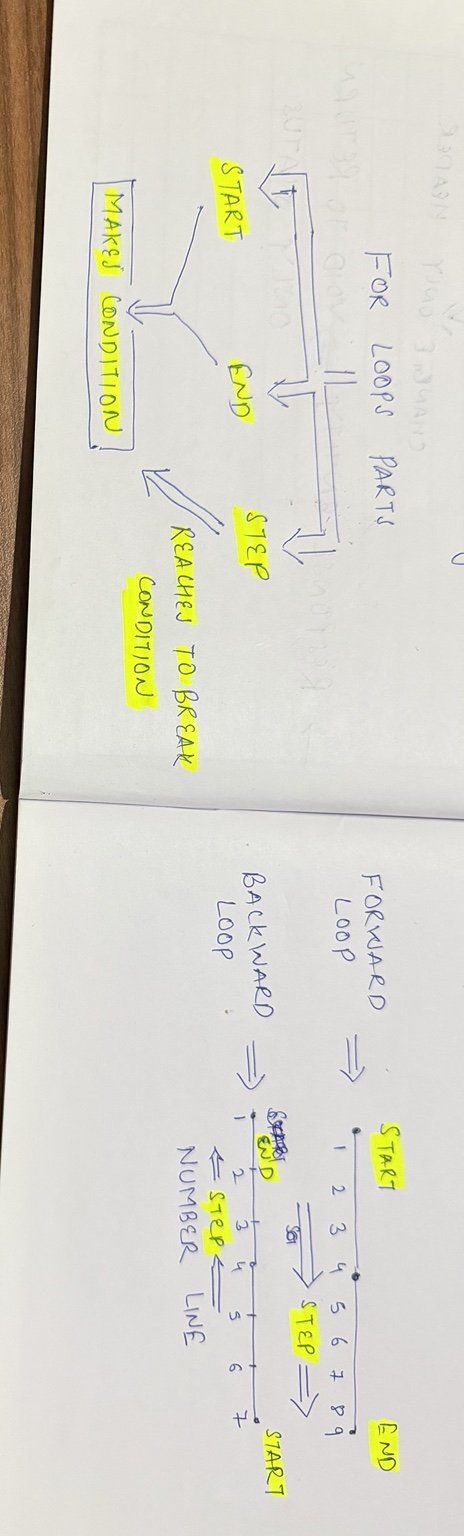 FOR LOOPS PARTS
START
END
STEP
MAKES CONDITION
REACHES TO BREAK
CONDITION
FORWARD
LOOP
START
END
1 2 3 4 5 6 7 8 9
STEP
BACKWARD
LOOP
END
START
1 2 3 4 5 6 7
STEP
NUMBER LINE